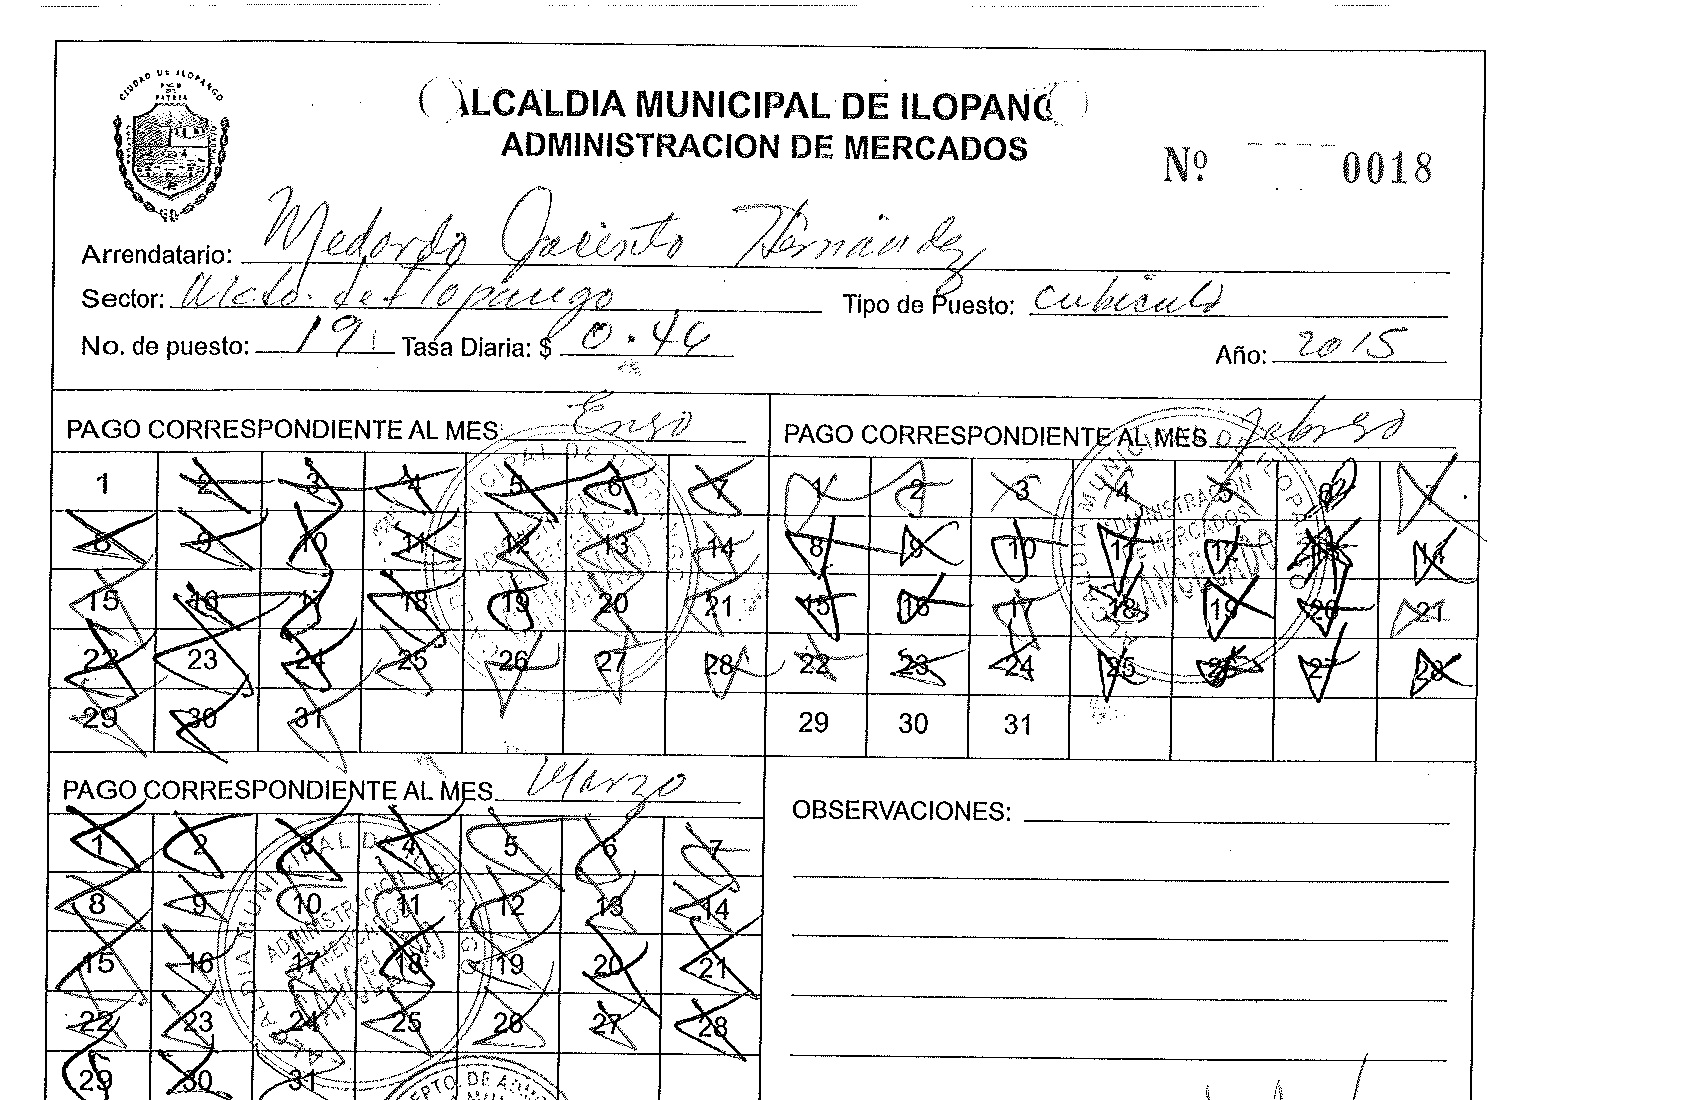 CIUDAD DE ILOPANGO
PATRIA
ALCALDIA MUNICIPAL DE ILOPANGO
ADMINISTRACION DE MERCADOS
Nº 0018
Arrendatario: Medardo Jacinto Hernández
Sector: Mcdo. de Ilopango Tipo de Puesto: cubiculo
No. de puesto: 19 Tasa Diaria: $ 0.46 Año: 2015
PAGO CORRESPONDIENTE AL MES Enero
1 2 3 4 5 6 7
8 9 10 11 12 13 14
15 16 17 18 19 20 21
22 23 24 25 26 27 28
29 30 31
PAGO CORRESPONDIENTE AL MES febrero
1 2 3 4 5 6 7
8 9 10 11 12 13 14
15 16 17 18 19 20 21
22 23 24 25 26 27 28
29 30 31
PAGO CORRESPONDIENTE AL MES Marzo
1 2 3 4 5 6 7
8 9 10 11 12 13 14
15 16 17 18 19 20 21
22 23 24 25 26 27 28
29 30 31
OBSERVACIONES:
ADMINISTRACION
MERCADOS